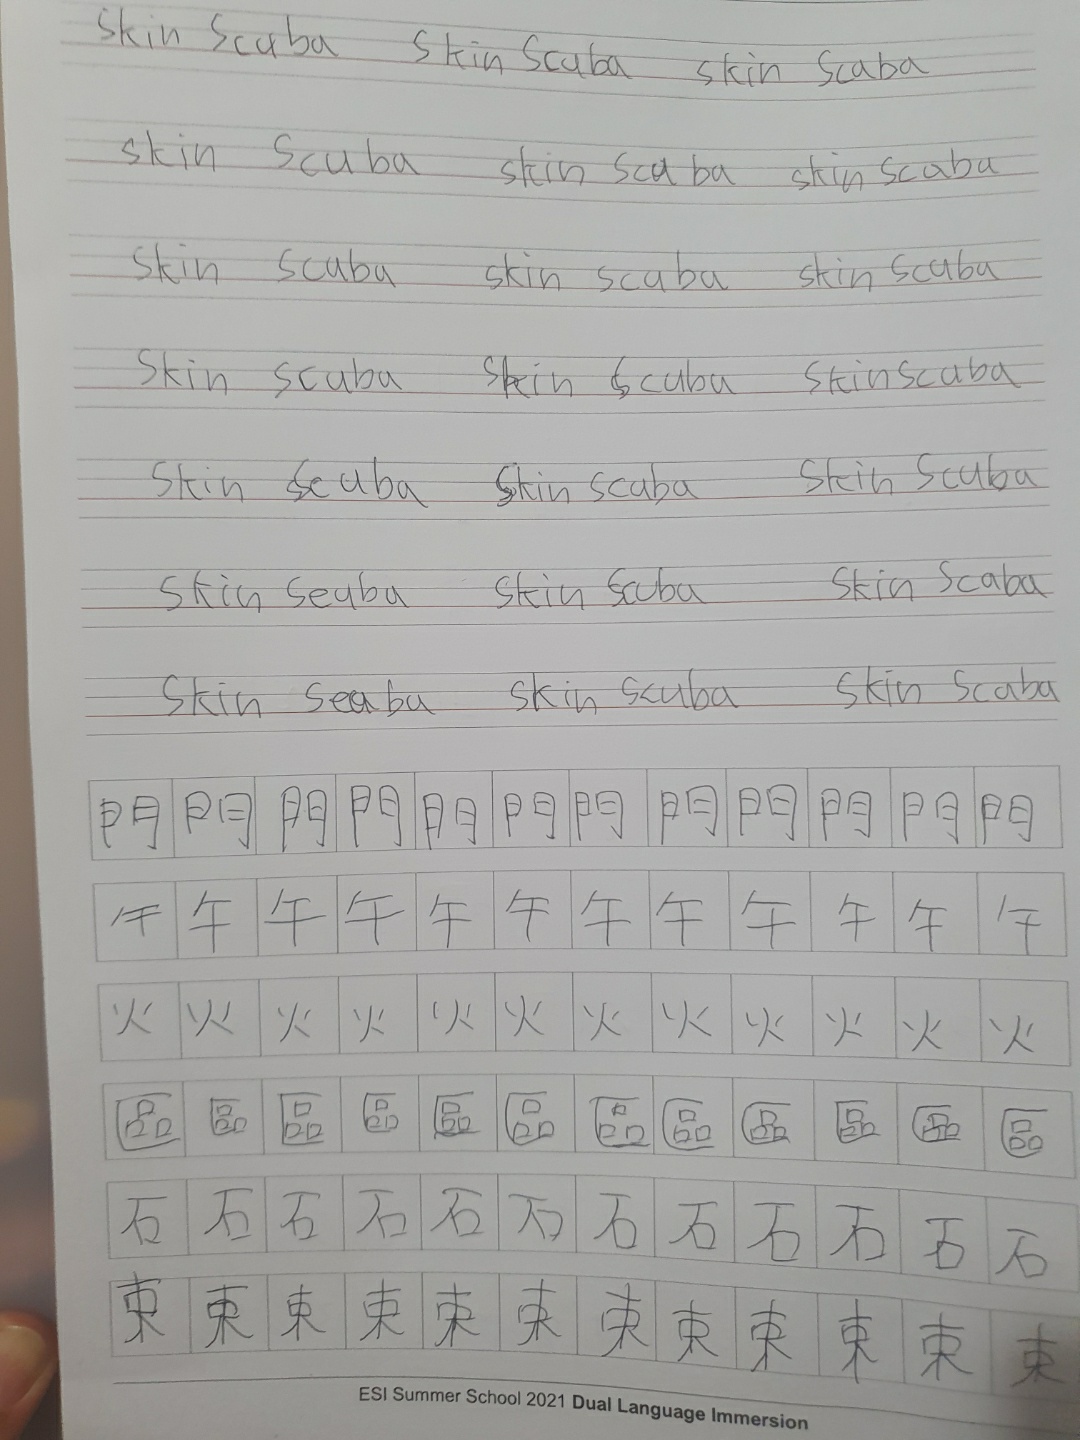 Skin Scuba Skin Scuba skin Scaba
skin Scuba skin scuba skin scaba
skin scuba skin scuba skin scuba
Skin scuba Skin scuba Skin scuba
Skin Scuba Skin scuba Skin Scuba
Skin Seuba Skin Scuba Skin Scaba
Skin Seaba Skin Scuba Skin Scaba
門 門 門 門 門 門 門 門 門 門 門 門
午 午 午 午 午 午 午 午 午 午 午 午
火 火 火 火 火 火 火 火 火 火 火 火
區 區 區 區 區 區 區 區 區 區 區 區
石 石 石 石 石 石 石 石 石 石 石 石
東 東 東 東 東 東 東 東 東 東 東 東
ESI Summer School 2021 Dual Language Immersion